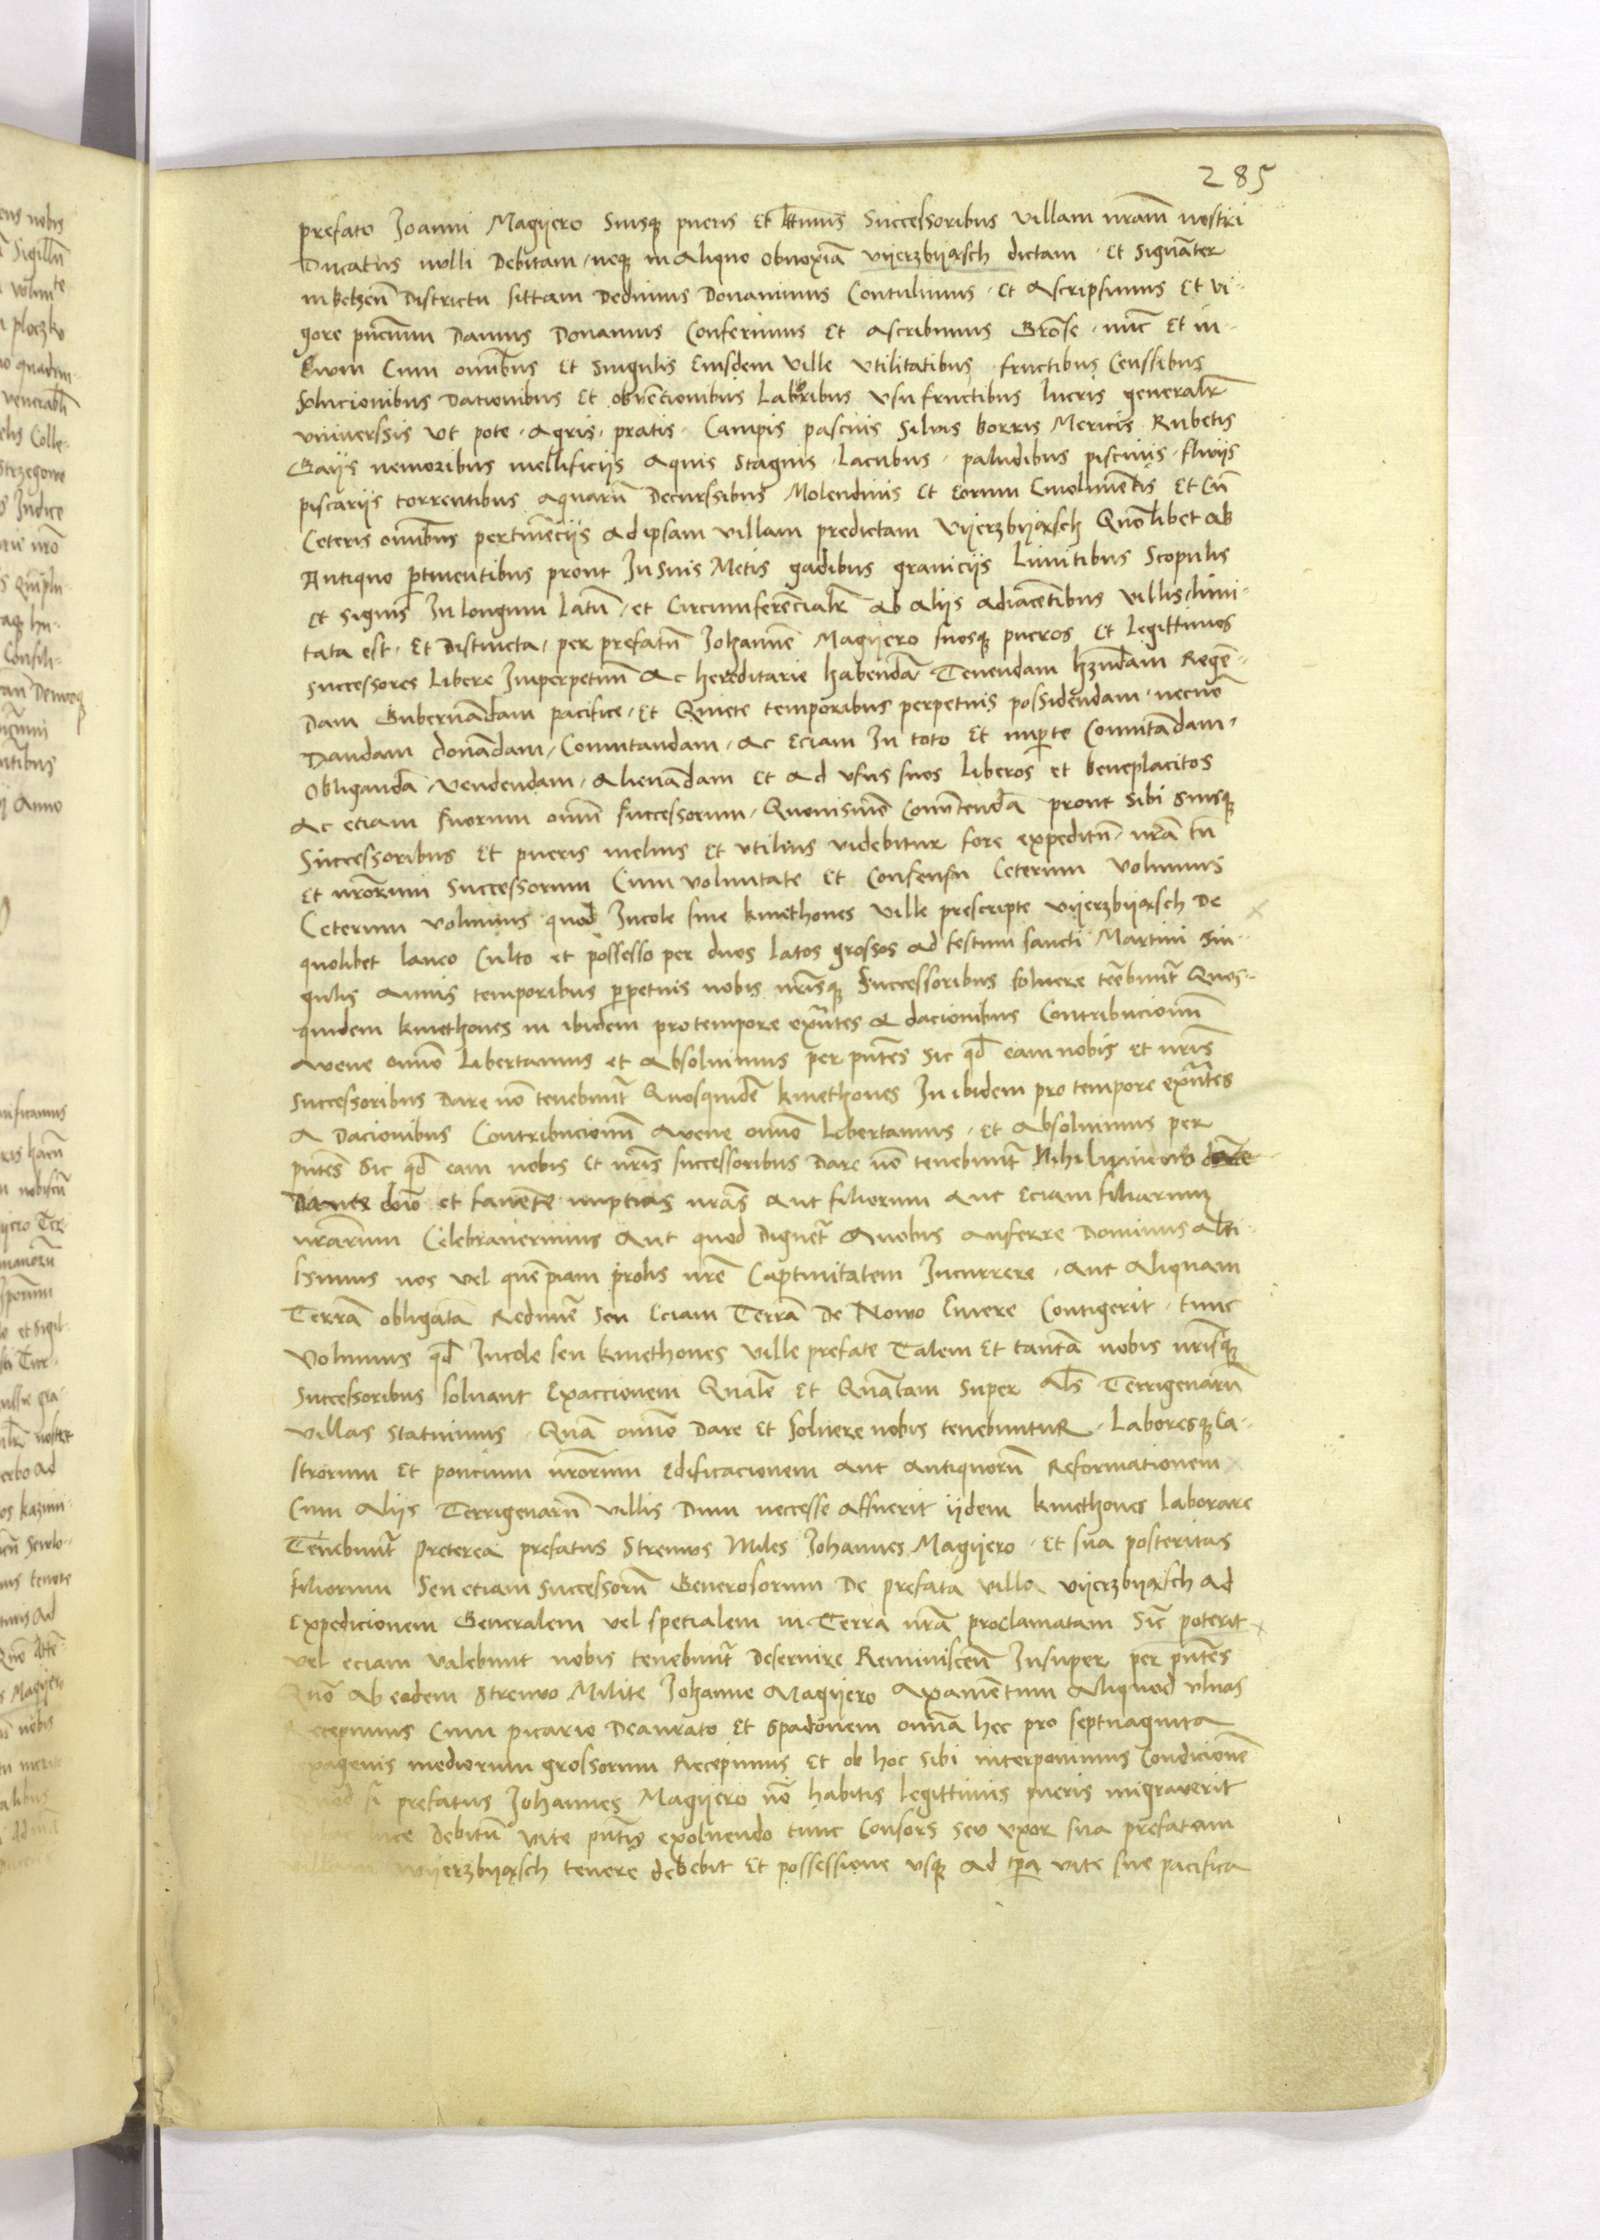 285
prefato Joanni Magijero Suisq pueris Et lttimis Successoribus villam nram nostri
Ducatus nulli Debitam neq in Aliquo obnoxiã Vijerzbijąsch dictam Et Signãter
in Districtu sittam Dedimus Donauimus Contulimus Et Ascripsimus Et vi-
gore pnciuum Damus Donamus Conferimus Et Ascribimus Grõse nũc Et in
Ewm Cum omibus Et Singulis Eiusdem Ville Vtilitatibus fructibus Censsibus
Solucionibus Dationibus Et obvẽcionibus Laboribus Vsufructibus lucris generalr
vniuerssis Vt pote Agris pratis Campis pascuis Siluis borris Mericis Rubetis
Gaijs nemoribus mellificijs Aquis Stagnis Lacubus paludibus piscinis fluuijs
piscarijs torrentibus Aquarũ Decurssibus Molendinis Et Eorum Emolimẽtis Et Cũ
Ceteris omibus pertinẽcijs Ad ipsam villam predictam Vijerzbijąsch Quolibet Ab
Antiquo ptinentibus prout In Suis Metis gadibus granicijs Limitibus Scopulis
Et Signis In longum Latũ et Circumferẽcialr Ab Alijs Adiacẽtibus Villis limi-
tata est Et Distincta per prefatũ Johannẽ Magijero suosq pueros Et Legittimos
successores Libere Imperpetuũ Ac hereditarie habendã Tenendam hzndam Regẽ-
Dam Gubernãdam pacifice Et Quiete temporibus perpetuis possidendam necnõ
Dandam donãdam Comutandam Ac Eciam In toto Et inpte Comutãdam
Obligandã vendendam Alienãdam Et Ad vsus suos Liberos et beneplacitos
Ac etiam suorum omiũ successorum Quouismõ Conũtendã prout Sibi Suisq
Successoribus Et pueris melius Et vtilius videbitur fore expeditũ nrã tñ
Et nrorum Successorum Cum voluntate Et Consensu Ceterum Volumus
Ceterum volumus quod Incole siue kmethones Ville prescripte Vijerzbijąsch De
quolibet laneo Culto et possesso per duos latos grossos Ad festum sancti Martini Sin-
gulis Annis temporibus ppetuis nobis nrisq Successoribus soluere tẽebuntr Quos-
quidem kmethones in ibidem pro tempore exñtes A dacionibus Contribucionũ
Auene omĩo Libertamus et Absoluimus per pntes Sic qd eam nobis et nris
successoribus Dare nõ tenebuntr Quosquidẽ kmethones In ibidem pro tempore exñtes
A Dacionibus Contribucionũ Auene omĩo Libertamus Et Absoluimus per
pntes Sic qd eam nobis Et nris successoribus Dare nõ tenebuntr
Dante dño et fauẽte nuptias nras Aut filiorum Aut Eciam filiarum
nrarum Celebrauerimus Aut quod Dignetr A nobis Auferre Dominus Alti-
ssimus nos vel quẽpiam prolis nrẽ Captiuitatem Incurrere Aut Aliquam
Terrã obligatã Redimẽ Seu Eciam Terrã De Nouo Emere Contigerit tunc
Volumus qd Incole seu kmethones Ville prefate Talem Et tantã nobis nrisq
Successoribus soluant Exaccionem Qualẽ Et Quãtam Super Als Terrigenarũ
villas Statuimus Quã omĩo Dare Et Soluere nobis tenebuntuR Laboresq Ca-
strorum Et poncium nrorum Edificacionem Aut Antiquorũ Reformationem
Cum Alijs Terrigenarũ Villis Dum neccesse Affuerit ijdem kmethones Laborare
Tenebuntr preterea prefatus Strenuos Miles Johannes Magijero Et sua posteritas
filiorum Seu etiam Successorũ Generosorum De prefata villa Vijerzbijąsch Ad
Expedicionem Generalem vel spetialem in Terra nrã proclamatam Sic poterit
vel eciam valebunt nobis tenebuntr Deseruire Reminiscẽtes Insuper per pntes
Quo Ab eodem Strenuo Milite Johanne Magijero Axamẽtum Aliquod vlnas
Recepimus Cum picario Deaurato Et Spadonem omña hec pro Septuaginta
exagenis mediorum grossorum Recepimus Et ob hoc Sibi interponimus Condicionẽ
quod si prefatus Johannes Magijero nõ habitis legittimis pueris migrauerit
luce Debitũ vite pntis exoluendo tunc Consors seu vxor sua prefatam
villam Wijerzbijąsch tenere debebit Et possessione vsq Ad tpa vite sue pacifica